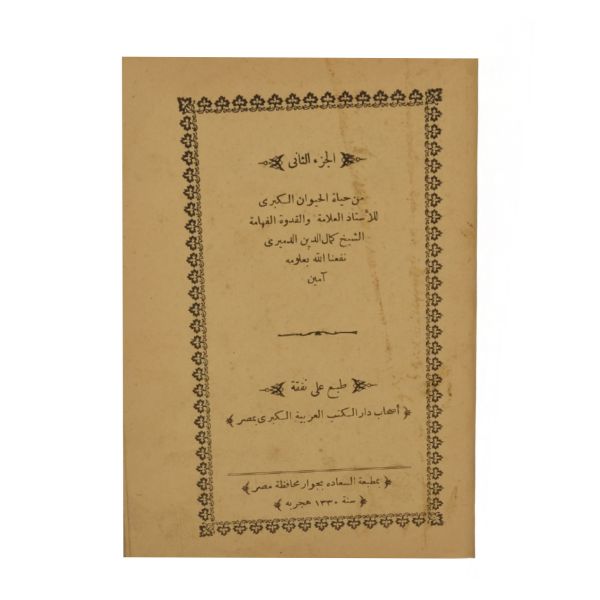 الجزء الثانى
من حياة الحيوان الكبرى
للأستاذ العلامة والقدوة الفهامة
الشيخ كمال الدين الدميرى
نفعنا الله بعلومه
آمين
طبع على نفقة
أصحاب دار الكتب العربية الكبرى بمصر
بمطبعة السعاده بجوار محافظة مصر
سنة ١٣٣٠ هجريه